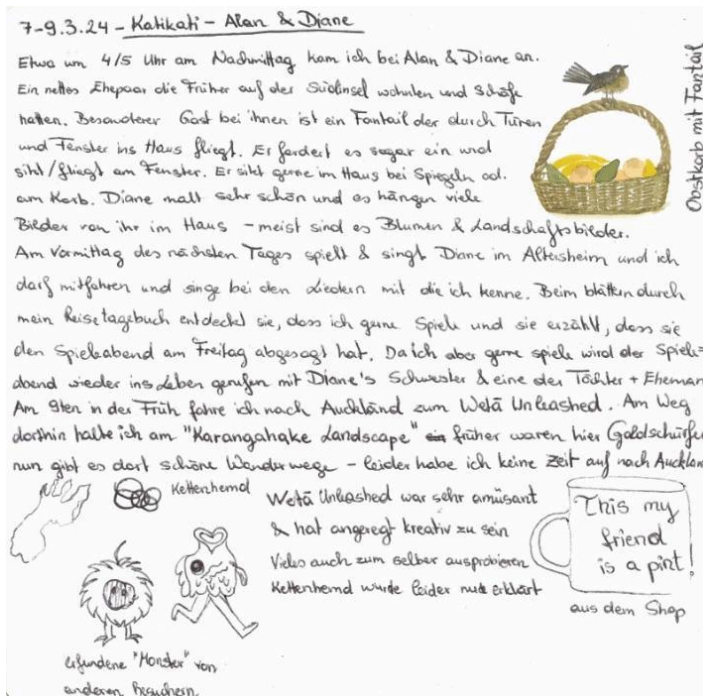 7-9.3.24 - Katikati - Alan & Diane
Etwa um 4/5 Uhr am Nachmittag kam ich bei Alan & Diane an.
Ein nettes Ehepaar die früher auf der Südinsel wohnten und Schafe
hatten. Besonderer Gast bei ihnen ist ein Fantail der durch Türen
und Fenster ins Haus fliegt. Er fordert es sogar ein und
sitzt/fliegt am Fenster. Er sitzt gerne im Haus bei Spiegeln od.
am Korb. Diane malt sehr schön und es hängen viele
Bilder von ihr im Haus - meist sind es Blumen & Landschaftsbilder.
Am Vormittag des nächsten Tages spielt & singt Diane im Altersheim und ich
darf mitfahren und singe bei den Liedern mit die ich kenne. Beim blättern durch
mein Reisetagebuch entdeckt sie, dass ich gerne Spiele und sie erzählt, dass sie
den Spieleabend am Freitag abgesagt hat. Da ich aber gerne spiele wird der Spiele=
abend wieder ins Leben gerufen mit Diane's Schwester & eine der Töchter + Eheman
Am 9ten in der Früh fahre ich nach Auckland zum Wetā Unleashed. Am Weg
dorthin halte ich am "Karangahake Landscape" früher waren hier Goldschürfer
nun gibt es dort schöne Wanderwege - leider habe ich keine Zeit auf nach Aucklan
Obstkorb mit Fantail
Kettenhemd
Wetā Unleashed war sehr amüsant
& hat angeregt kreativ zu sein
Vieles auch zum selber ausprobieren
Kettenhemd wurde leider nur erklärt
This my
friend
is a pint!
aus dem Shop
erfundene "Monster" von
anderen Besuchern